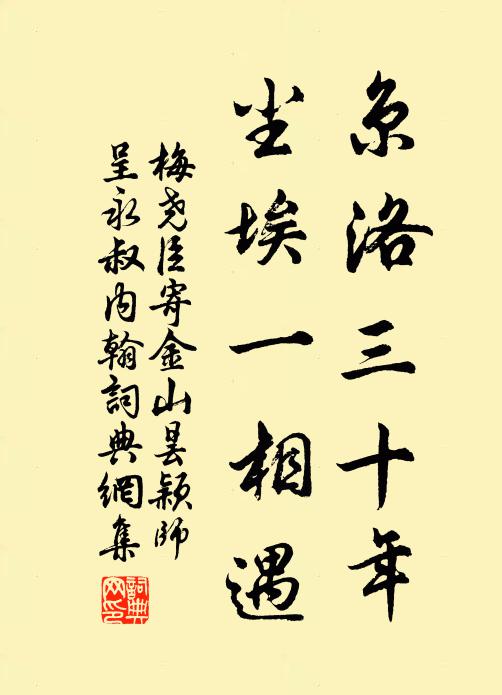 京洛三十年
尘埃一相遇
梅尧臣寄金山昙颖师
呈永叔内翰詞典網集
詞典网印